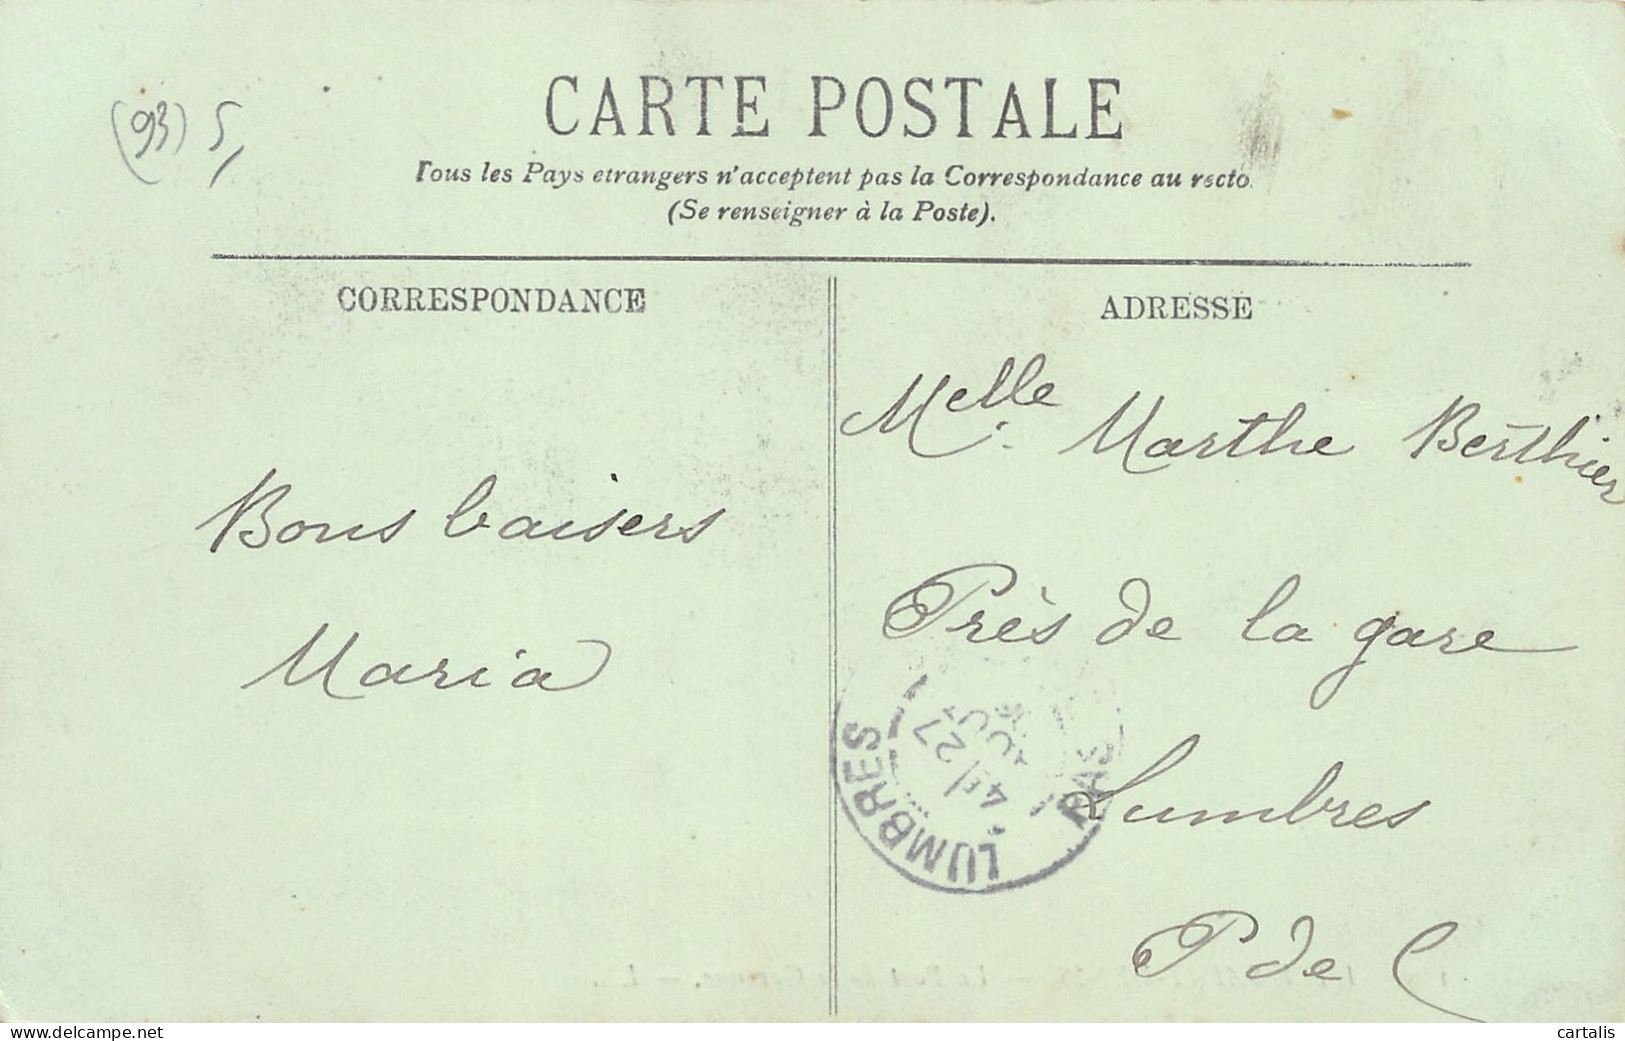 (93) 5,
CARTE POSTALE
Tous les Pays etrangers n'acceptent pas la Correspondance au recto.
(Se renseigner à la Poste).
CORRESPONDANCE
ADRESSE
Bons baisers
Maria
Melle Marthe Berthier
Près de la gare
Lumbres
P de C
LUMBRES
PAS
27
cartalis
delcampe.net